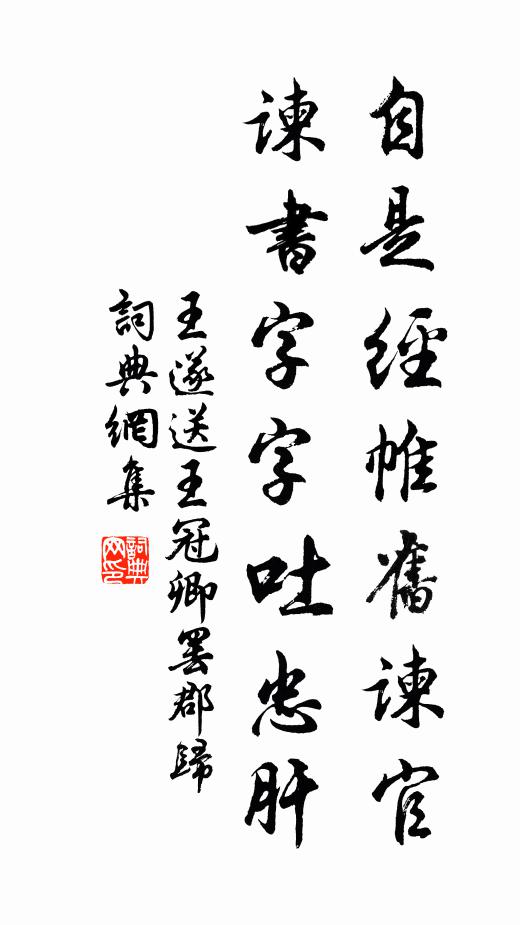 自是經帷舊諫官
諫書字字吐忠肝
王遂送王冠卿罷郡歸
詞典網集
詞典網印